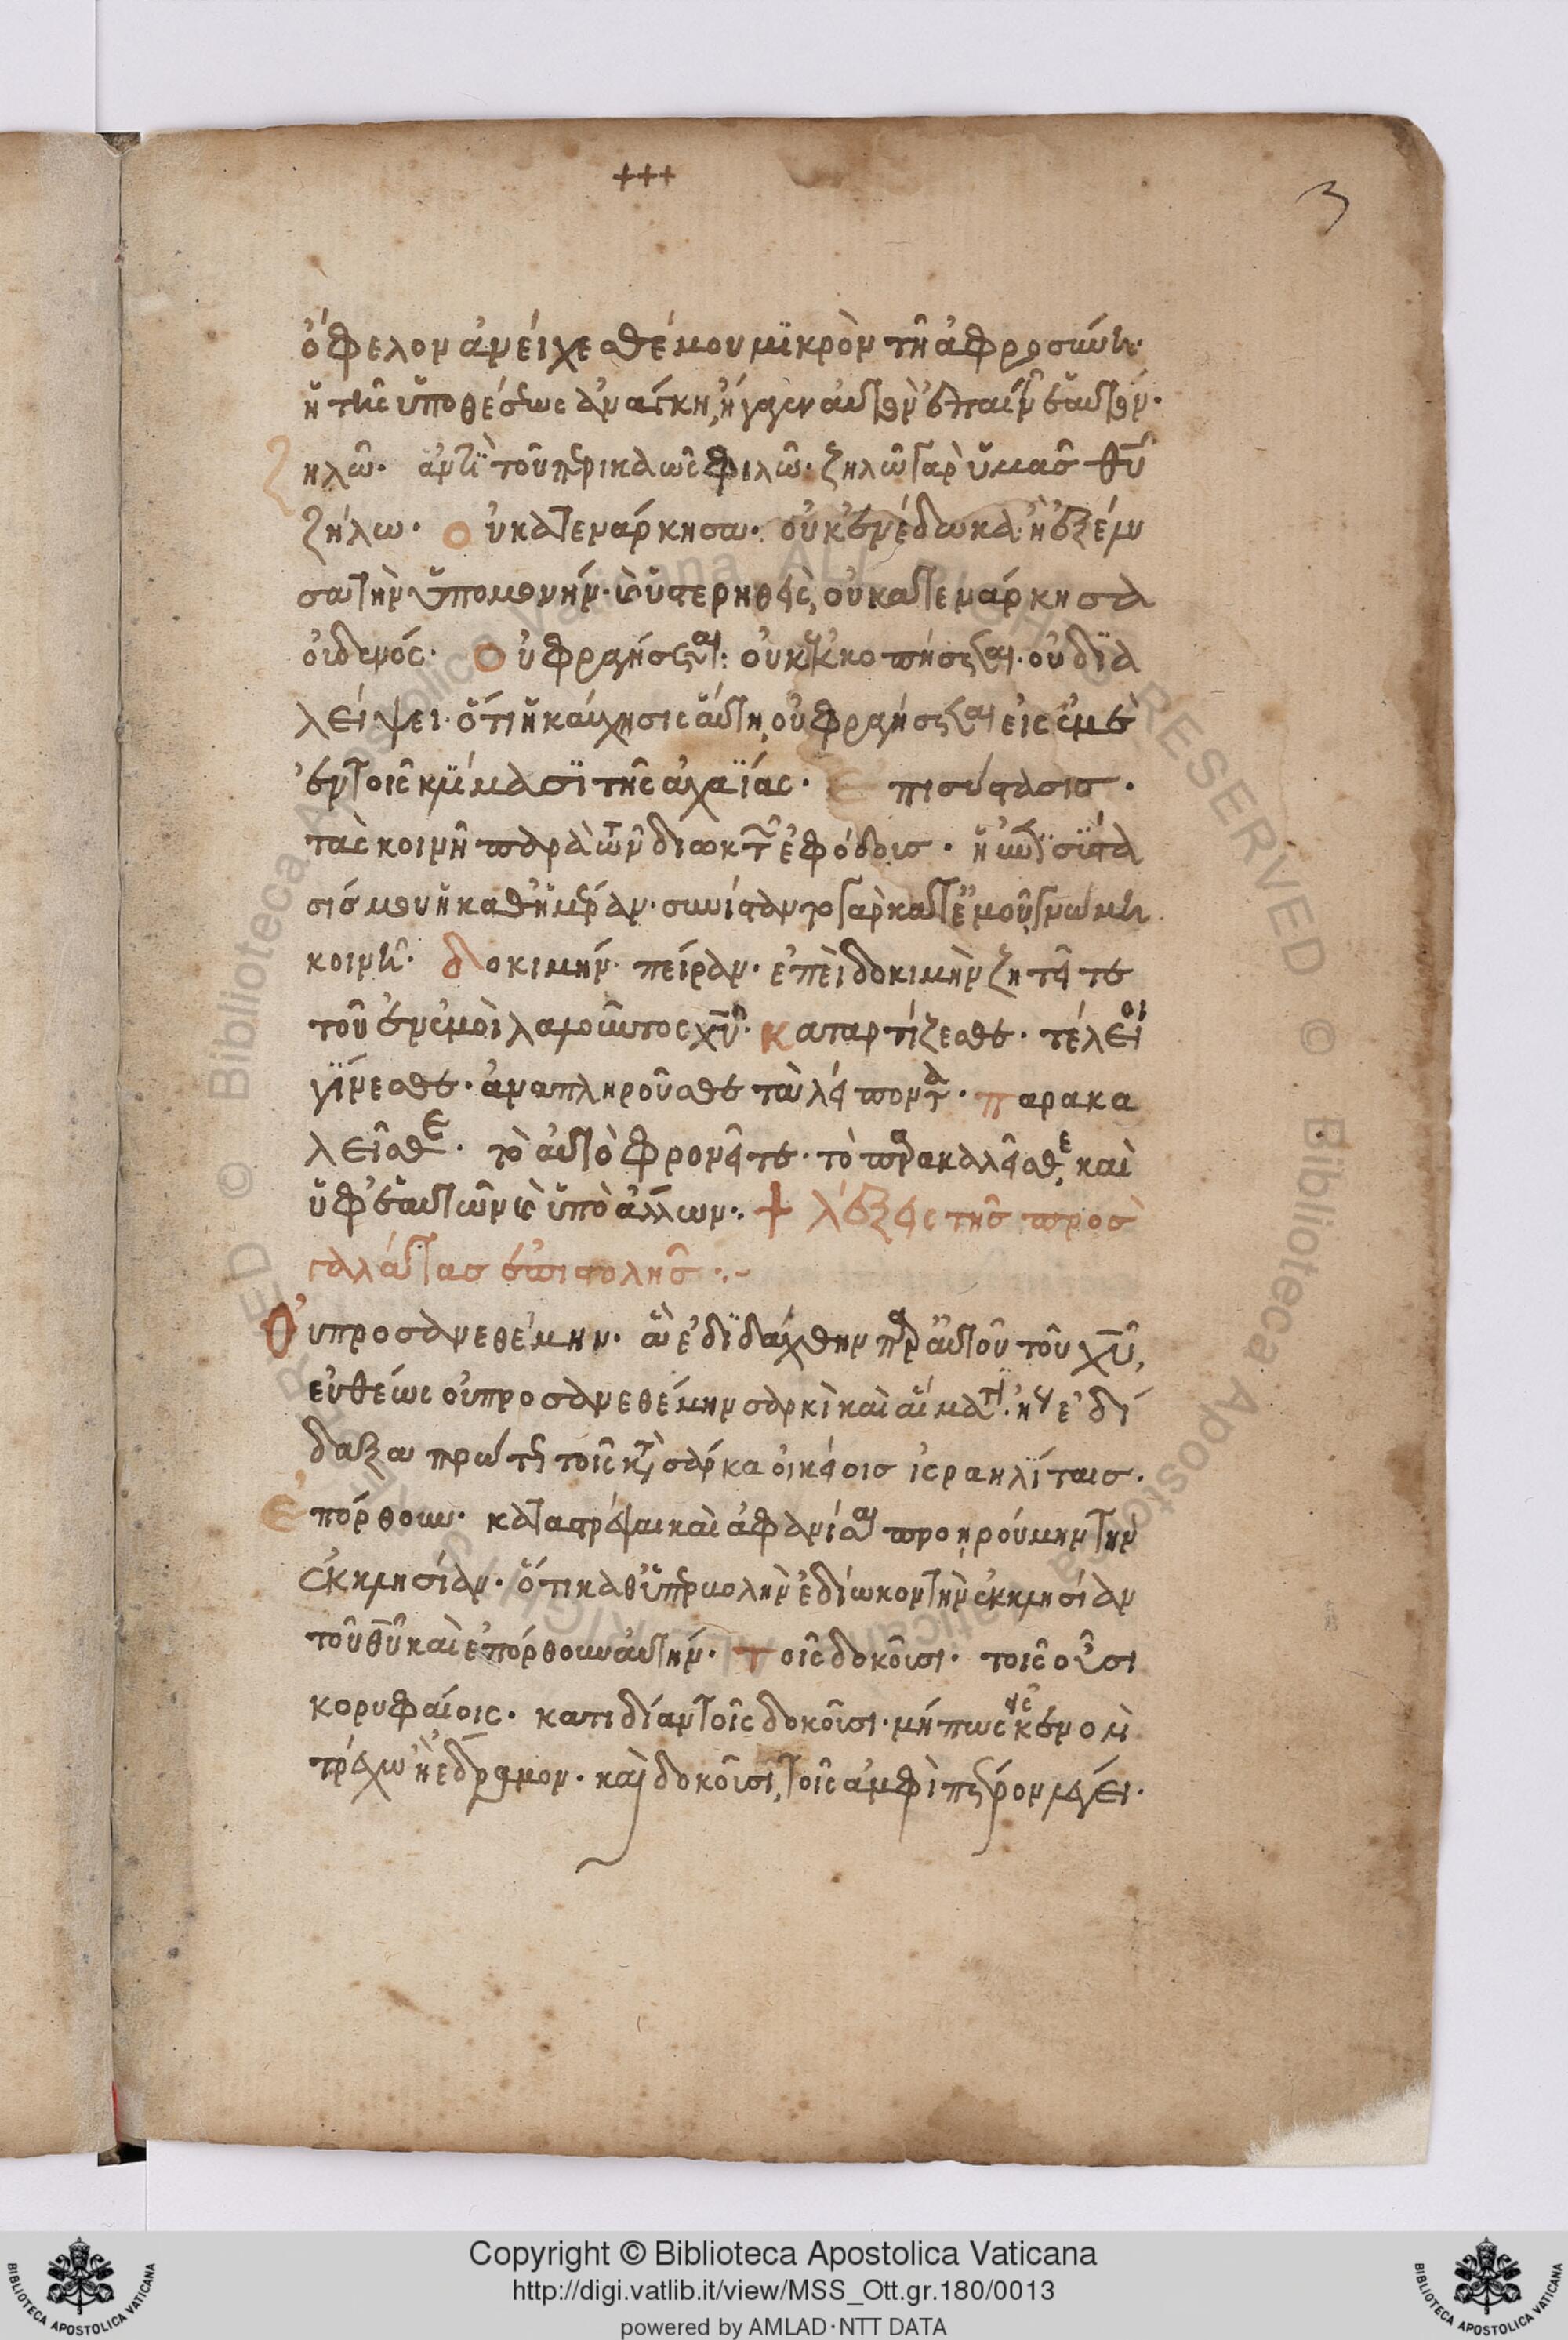 +++
3
ὄφελον ἀνείχεσθέ μου μϊκρὸν τῆ ἀφροσύνη·
ἡ τῆς ὑποθέσεως ἀνάγκη, ἤγαγεν αὐτὸν ἐπαινεῖν ἑαυτόν·
Ζηλῶ· ἀντϊ τοῦ περικαῶς φιλῶ· ζηλῶ γὰρ ὑμᾶς θῡ
ζήλω· Οὐ κατενάρκησα· οὐκ ἐνέδωκα· ἢ ἐξέλυ
σα τὴν ὑπομονήν· καὶ ὑστερηθεὶς, οὐ κατενάρκησα
οὐδενός· Οὐ φραγήσεται: οὐκ ἐκκοπήσεται· οὐ δϊα
λείψει· ὅτι ἡ καύχησις αὕτη, οὐ φραγήσεται εἰς ἐμὲ
ἐν τοῖς κλίμασϊ τῆς ἀχαΐας· Ἐπισύστασις·
ταῖς κοινῆ παρὰ τῶν διωκτῶν ἐφόδοις· ἡ ἐπϊσύστα
σίς μου ἡ καθ' ἡμέραν· συνίσταντο γὰρ κατ' ἐμοῦ γνώμη
κοινῆ· Δοκιμήν· πεῖραν· ἐπεὶ δοκιμὴν ζητεῖτε
τοῦ ἐν ἐμοὶ λαλοῦντος χῡ· Καταρτίζεσθε· τέλειοι
γίνεσθε· ἀναπληροῦσθε τὰ λείποντα· Παρακα
λεῖσθε· τὸ αὐτὸ φρονεῖτε· τὸ παρακαλεῖσθε, καὶ
ὑφ' ἑαυτῶν καὶ ὑπὸ ἄλλων·. + λέξεις τῆς πρὸς
γαλάτας ἐπιστολῆς ·.-
Οὐ προσανεθέμην· ἃ ἐδϊδάχθην παρ' αὐτοῦ τοῦ χῡ,
εὐθέως οὐ προσανεθέμην σαρκὶ καὶ αἵματι· ἤγουν ἐδί
δαξα πρώτη τοῖς κατὰ σάρκα οἰκείοις ἰσραηλίταις·
Ἐπόρθουν· καταστρέψαι καὶ ἀφανίσαι προηρούμην τὴν
ἐκκλησίαν· ὅτι καθ' ὑπερβολὴν ἐδίωκον τὴν ἐκκλησίαν
τοῦ θῡ καὶ ἐπόρθουν αὐτήν· Τοῖς δοκοῦσι· τοῖς οὖσι
κορυφαίοις· κατιδίαν τοῖς δοκοῦσι· μήπως εἰς κενὸν
τρέχω ἢ ἔδραμον· καὶ δοκοῦσι, τοῖς ἀμφὶ πέτρον λέγει·
Copyright © Biblioteca Apostolica Vaticana
http://digi.vatlib.it/view/MSS_Ott.gr.180/0013
powered by AMLAD·NTT DATA